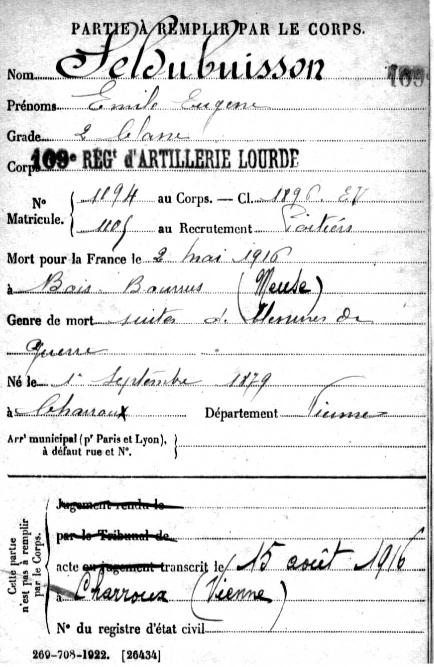 PARTIE À REMPLIR PAR LE CORPS.
Nom Feldubuisson 109
Prénoms Emile Eugène
Grade 2e Classe
Corps 109e RÉGt d'ARTILLERIE LOURDE
No Matricule. { 1894 au Corps. — Cl. 1896. EV
1105 au Recrutement Poitiers
Mort pour la France le 2 mai 1916
à Bois Bourrus (Meuse)
Genre de mort suites de Blessures de
guerre
Né le 1er Septembre 1879
à Charroux Département Vienne
Arrt municipal (pr Paris et Lyon), à défaut rue et No.
Cette partie n'est pas à remplir par le Corps.
Jugement rendu le
par le Tribunal de
acte ou jugement transcrit le 15 août 1916
à Charroux (Vienne)
No du registre d'état civil
269-708-1922. [26434]